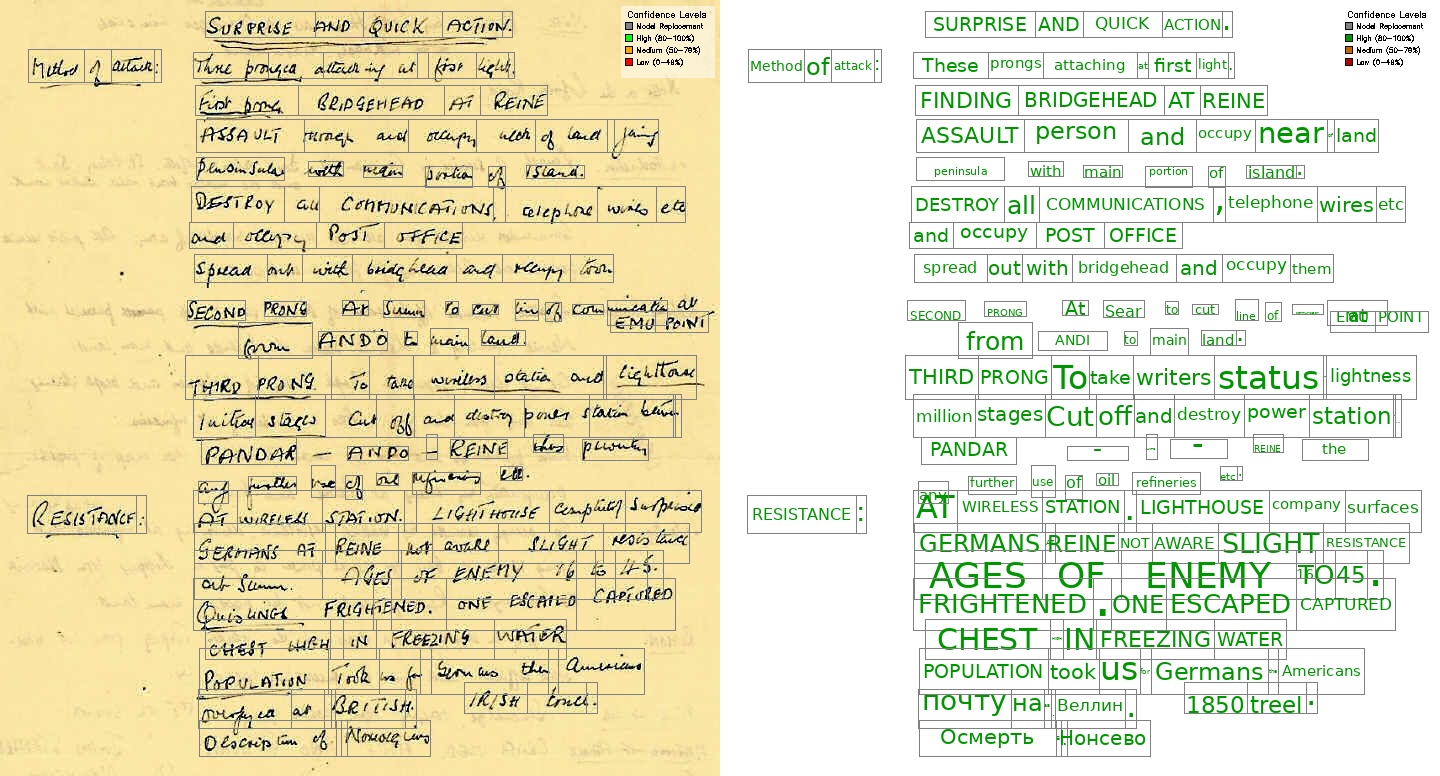 SURPRISE AND QUICK ACTION.
Method of attack:
Three pronged attacking at first light.
First prong BRIDGEHEAD AT REINE
ASSAULT through and occupy neck of land joining
peninsular with main portion of Island.
DESTROY all COMMUNICATIONS, telephone wires etc
and occupy POST OFFICE
Spread out with bridgehead and occupy town
SECOND PRONG At Sumn To cut line of communication at
EMU POINT
from ANDO to main land.
THIRD PRONG To take wireless station and lighthouse
Initial stages Cut off and destroy power station between
PANDAR — ANDO — REINE thus preventing
any further use of oil refineries etc.
RESISTANCE:
AT WIRELESS STATION. LIGHTHOUSE completely surprised
GERMANS AT REINE not aware SLIGHT resistance
at Sumn. AGES OF ENEMY 16 to 45.
Quislings FRIGHTENED. ONE ESCAPED CAPTURED
CHEST HIGH IN FREEZING WATER
POPULATION Took us for Germans then Americans
overjoyed at BRITISH. IRISH touch.
Description of Norwegians
Confidence Levels
Model Replacement
High (80-100%)
Medium (50-79%)
Low (0-49%)
SURPRISE AND QUICK ACTION.
Method of attack:
These prongs attaching at first light.
FINDING BRIDGEHEAD AT REINE
ASSAULT person and occupy near land
peninsula with main portion of island.
DESTROY all COMMUNICATIONS, telephone wires etc
and occupy POST OFFICE
spread out with bridgehead and occupy them
SECOND PRONG At Sear to cut line of at
EMU POINT
from ANDI to main land.
THIRD PRONG To take writers status lightness
million stages Cut off and destroy power station
PANDAR - - REINE the
any further use of oil refineries etc.
RESISTANCE:
AT WIRELESS STATION. LIGHTHOUSE company surfaces
GERMANS REINE NOT AWARE SLIGHT RESISTANCE
AGES OF ENEMY 16 TO 45.
FRIGHTENED. ONE ESCAPED CAPTURED
CHEST IN FREEZING WATER
POPULATION took us for Germans Americans
почту на Веллин. 1850 treel.
Осмерть Нонсево
Confidence Levels
Model Replacement
High (80-100%)
Medium (50-79%)
Low (0-49%)